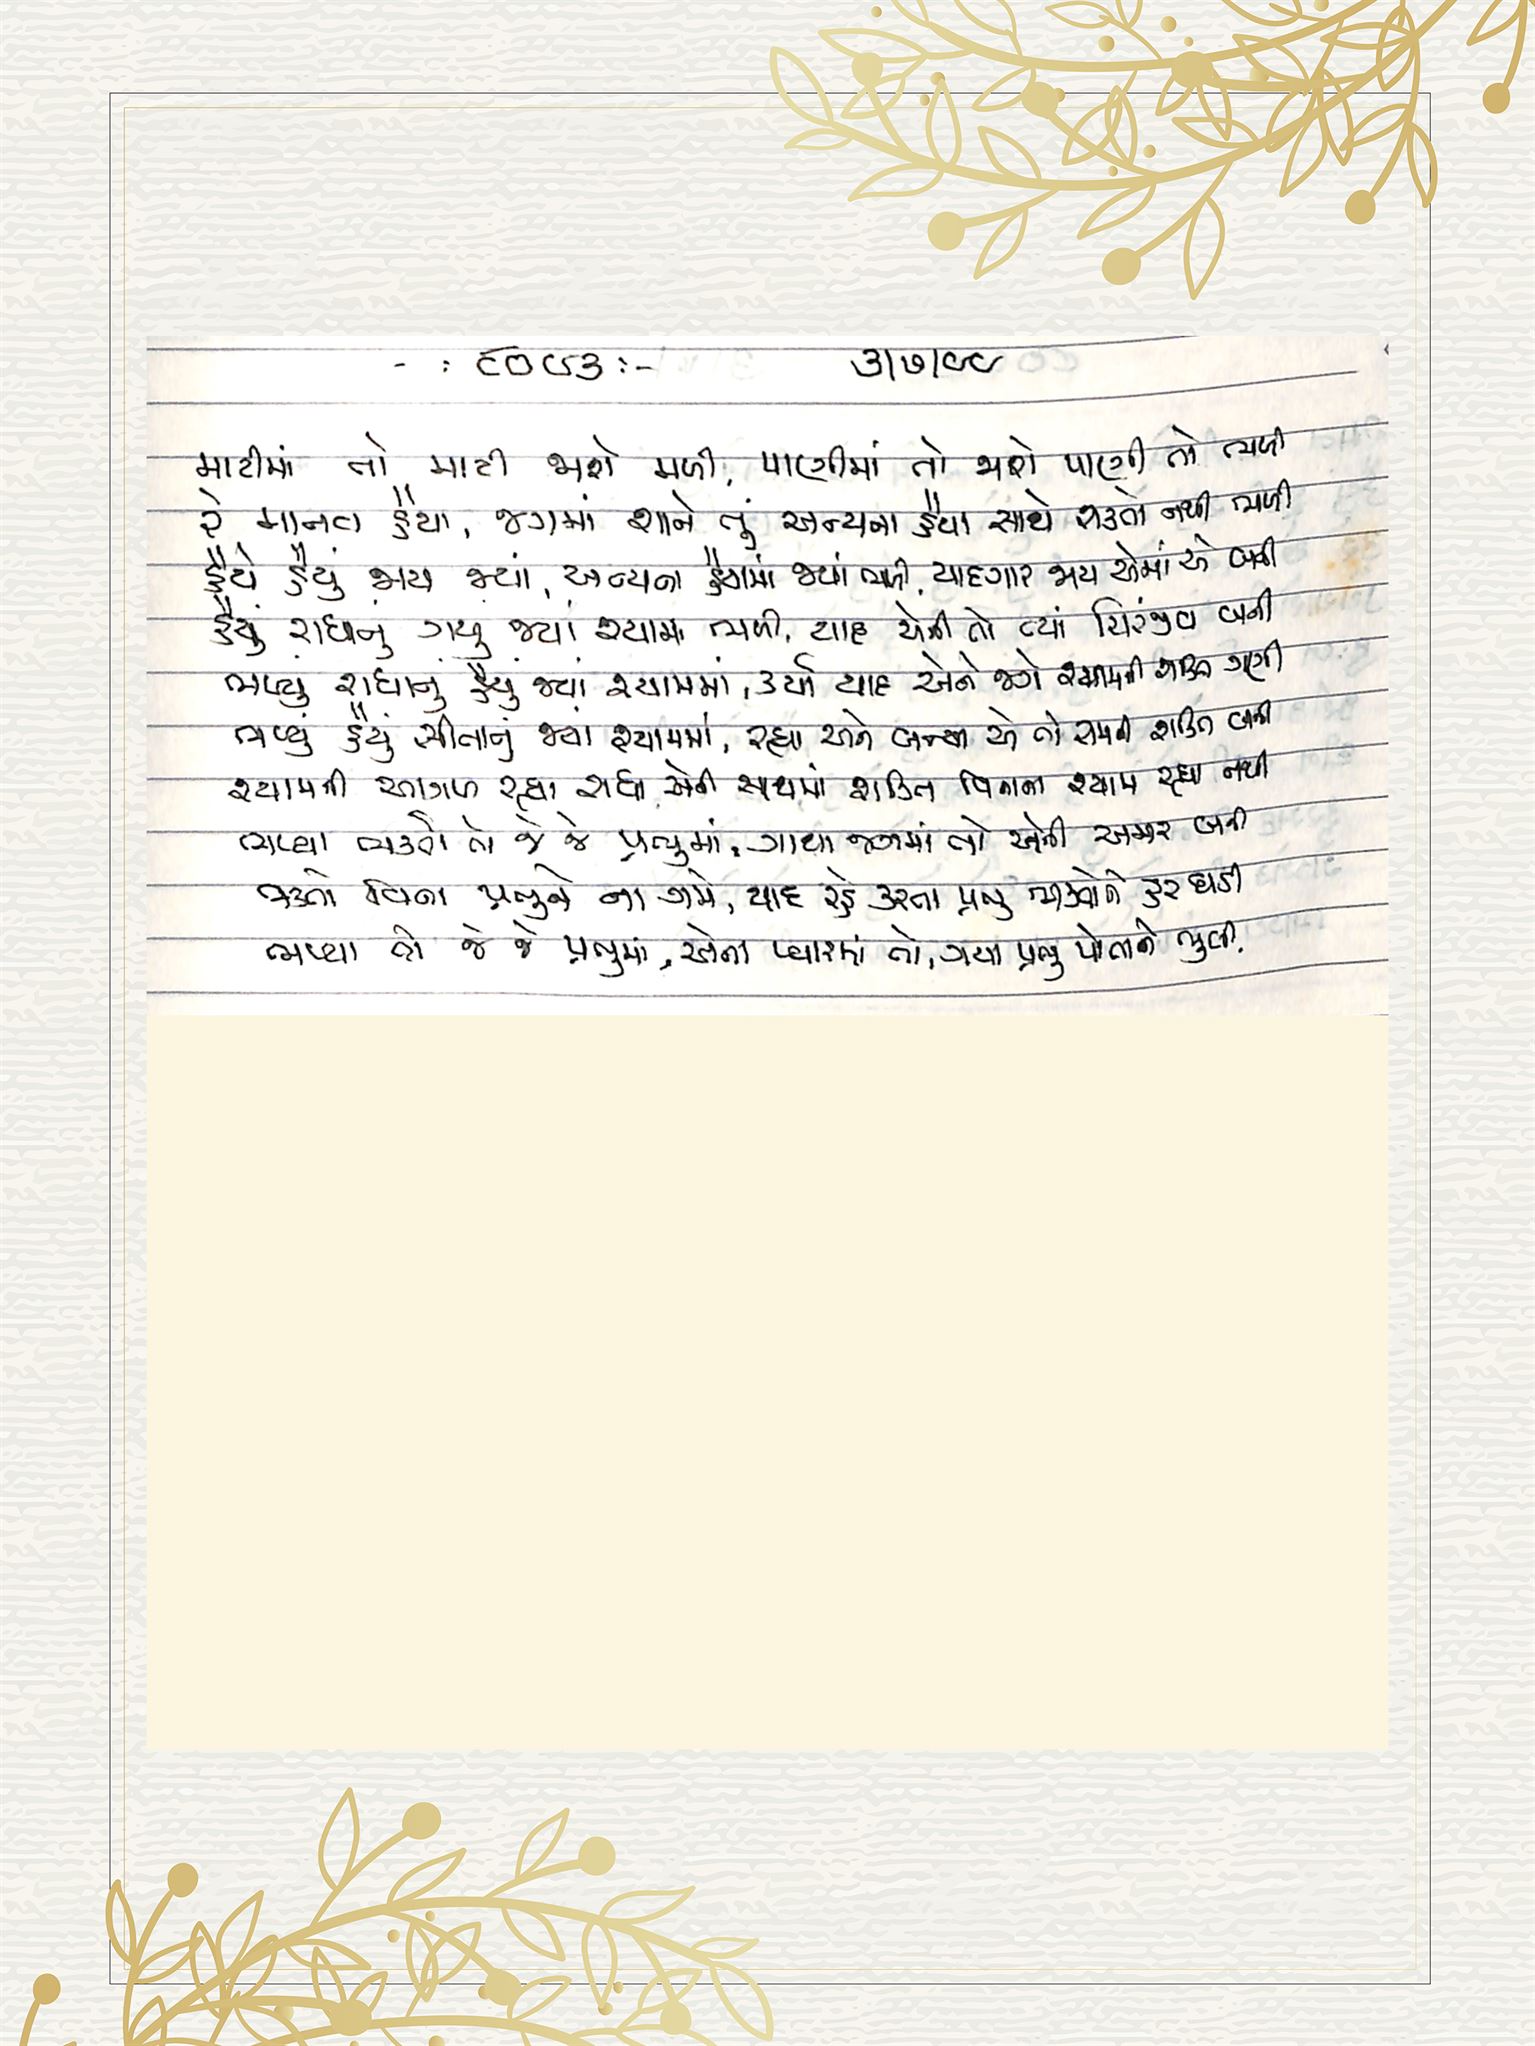 -: ૮૦૯૩ :- ૩/૭/૯૯
માટીમાં તો માટી જાશે મળી, પાણીમાં તો જાશે પાણી તો ભળી
રે માનવ હૈયા, જગમાં શાને તું અન્યના હૈયા સાથે શકતો નથી ભળી
હૈયે હૈયું જાય જ્યાં, અન્યના હૈયામાં જ્યાં ભળી, યાદગાર જાય એમાં એ બની
હૈયું રાધાનું ગયું જ્યાં શ્યામમાં ભળી, યાદ એની તો ત્યાં ચિરંજીવ બની
ભળ્યું રાધાનું હૈયું જ્યાં શ્યામમાં, કર્યા યાદ એને જગે શ્યામની શક્તિ ગણી
ભળ્યું હૈયું સીતાનું જ્યાં શ્યામમાં, રહ્યા અને બન્યા એ તો રામની શક્તિ બની
શ્યામની આગળ રહ્યા રાધા એની સાથમાં શક્તિ વિનાના શ્યામ રહ્યા નથી
ભળ્યા ભક્તો તો જે જે પ્રભુમાં, ગાથા જગમાં તો એની અમર બની
ભક્તો વિના પ્રભુને ના ગમે, યાદ રહે કરતા પ્રભુ ભક્તોને હર ઘડી
ભળ્યા તો જે જે પ્રભુમાં, એના પ્યારમાં તો, ગયા પ્રભુ પોતાને ભુલી.